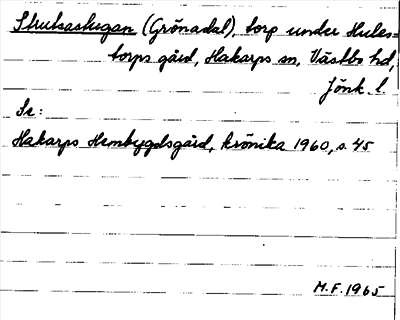 Strutsaskogan (Grönadal), torp under Hules=
torps gård, Hakarps sn, Västbo hd,
Jönk. l.
Se:
Hakarps Hembygdsgård, krönika 1960, s. 45
M.F. 1965